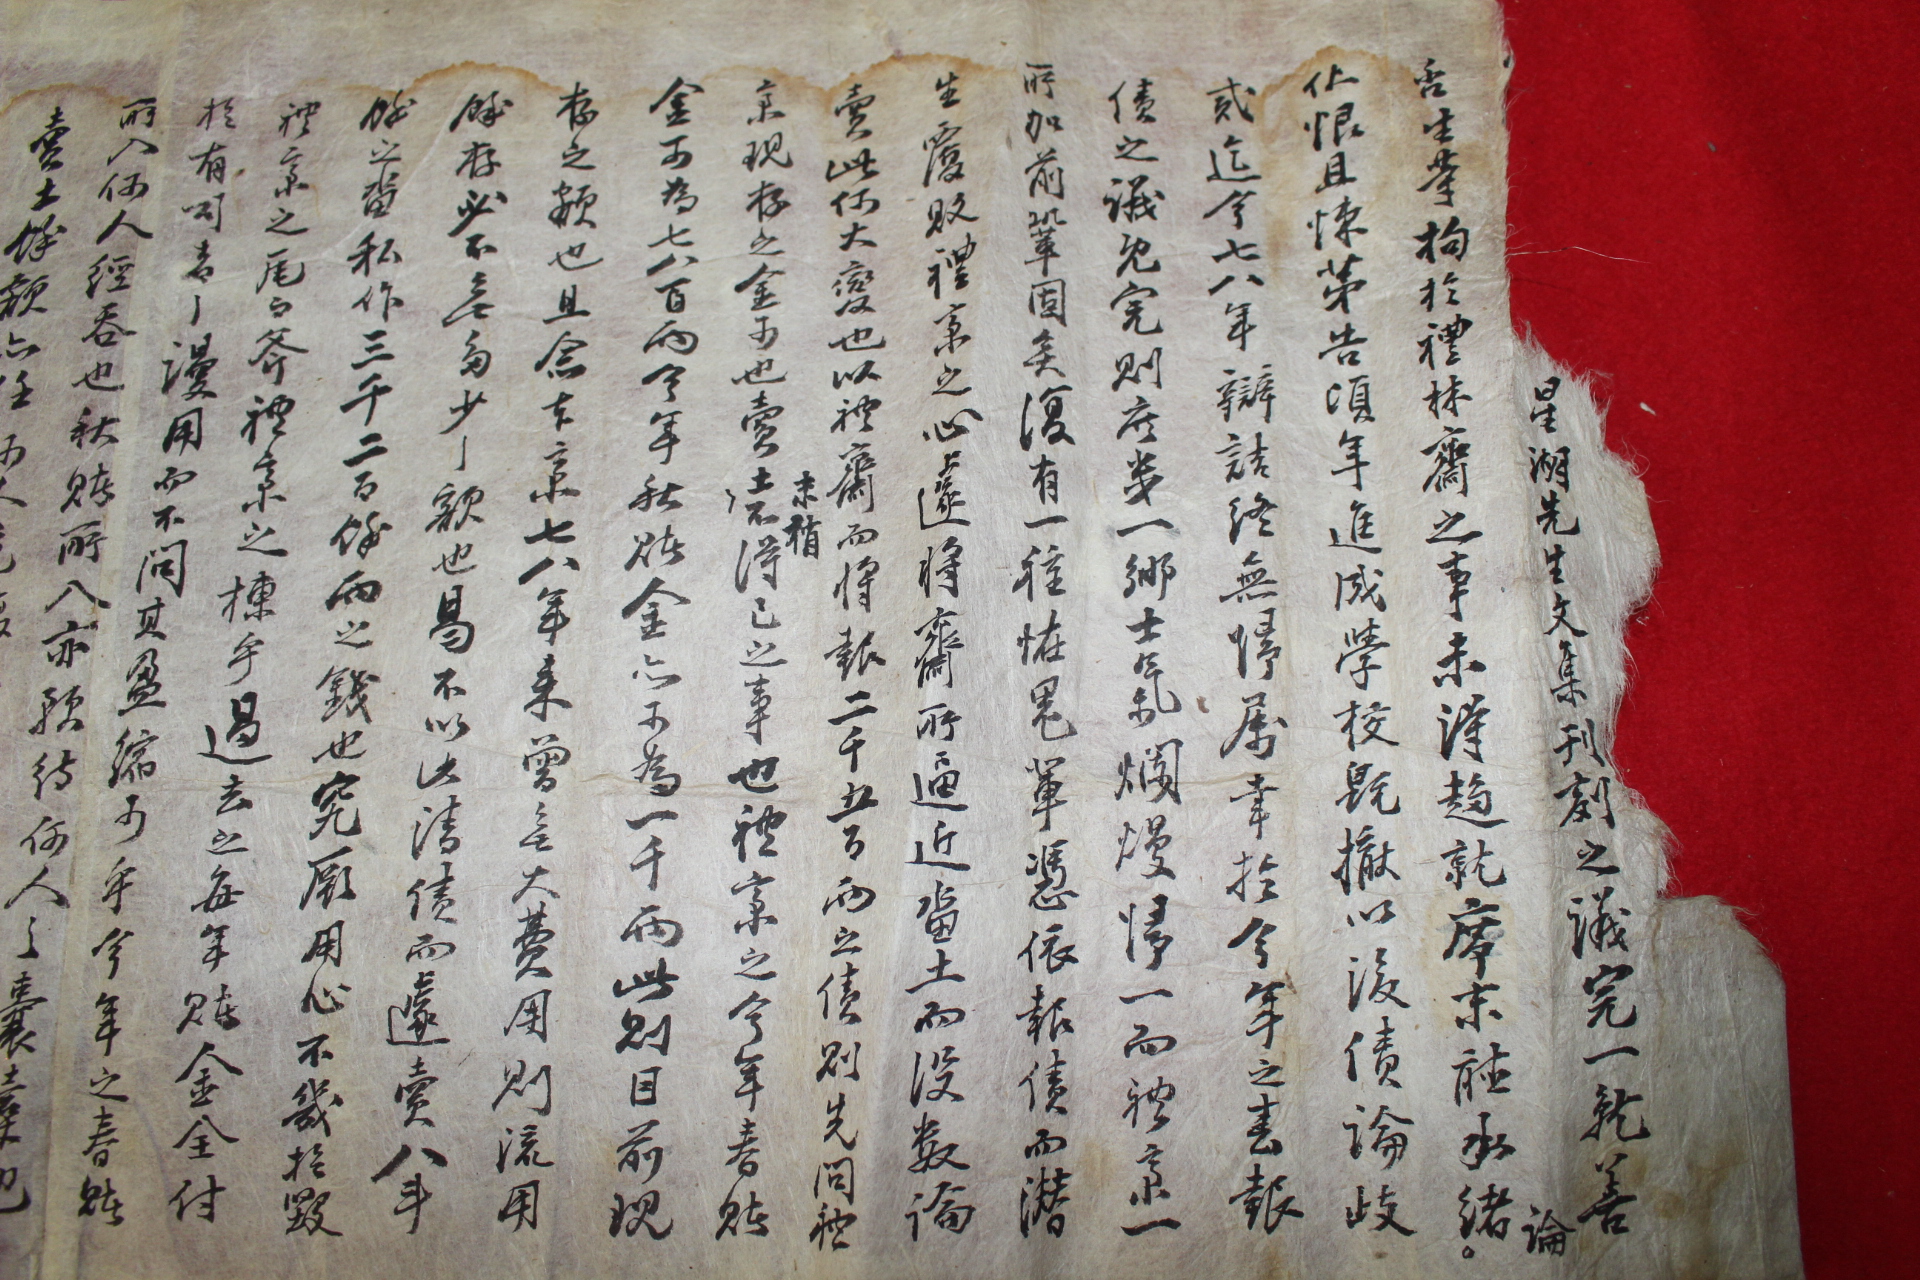 星湖先生文集刊劄之議完一就善
論
否生等拘於禮林齋之事未得趨就席末聽承緒
仕恨且悚第告頃年進成學校毀撤以後債論歧
貳迄今七八年辯詰終無歸屬幸於今年之春報
債之議完則庶幾一鄉士氣爛熳歸一而禮京一
所加前鞏固矣復有一種怪鬼輩憑依報債而潛
生覆敗禮京之心遽將齋所逼近畓土而沒數論
賣此何大變也以禮齋而將報二千五百兩之債則先問禮
京現存之金可也賣土
未稍
得已之事也禮京之今年春賭
金可為七八百兩今年秋賭金亦可為一千兩此則目前現
存之額也且念本京七八年來曾無大費用則流用
餘存必不無多少額也曷不以此清債而遽賣八斗
餘之畓私作三千二百餘兩之錢也究厥用心不幾於毀
禮京之尾而斧禮京之棟乎過去之每年賭金全付
於有司者漫用而不問其盈縮可乎今年之春賭
所入何人經吞也秋賭所入亦願待何人之囊橐也
賣土餘額亦任